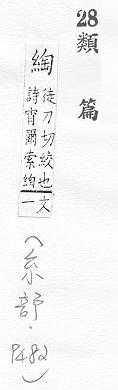 28類篇
綯
徒刀切絞也
詩宵爾索綯文一
(糸部·P482)